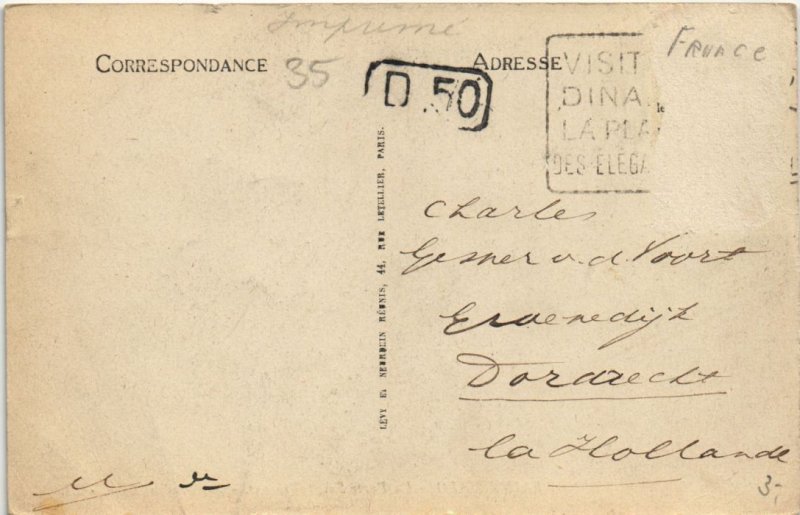 Imprimé
CORRESPONDANCE
35
D 50
ADRESSE
VISIT
DINA
LA PLA
DES ELEGA
France
LÉVY ET NEURDEIN RÉUNIS, 44, RUE LETELLIER, PARIS.
Charles
Gesner v. d. Voort
Groenedijk
Dordrecht
la Hollande
3,